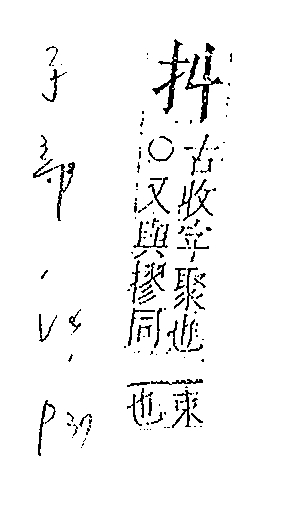 古收字聚也一束
○又與摎同也
子部
P37